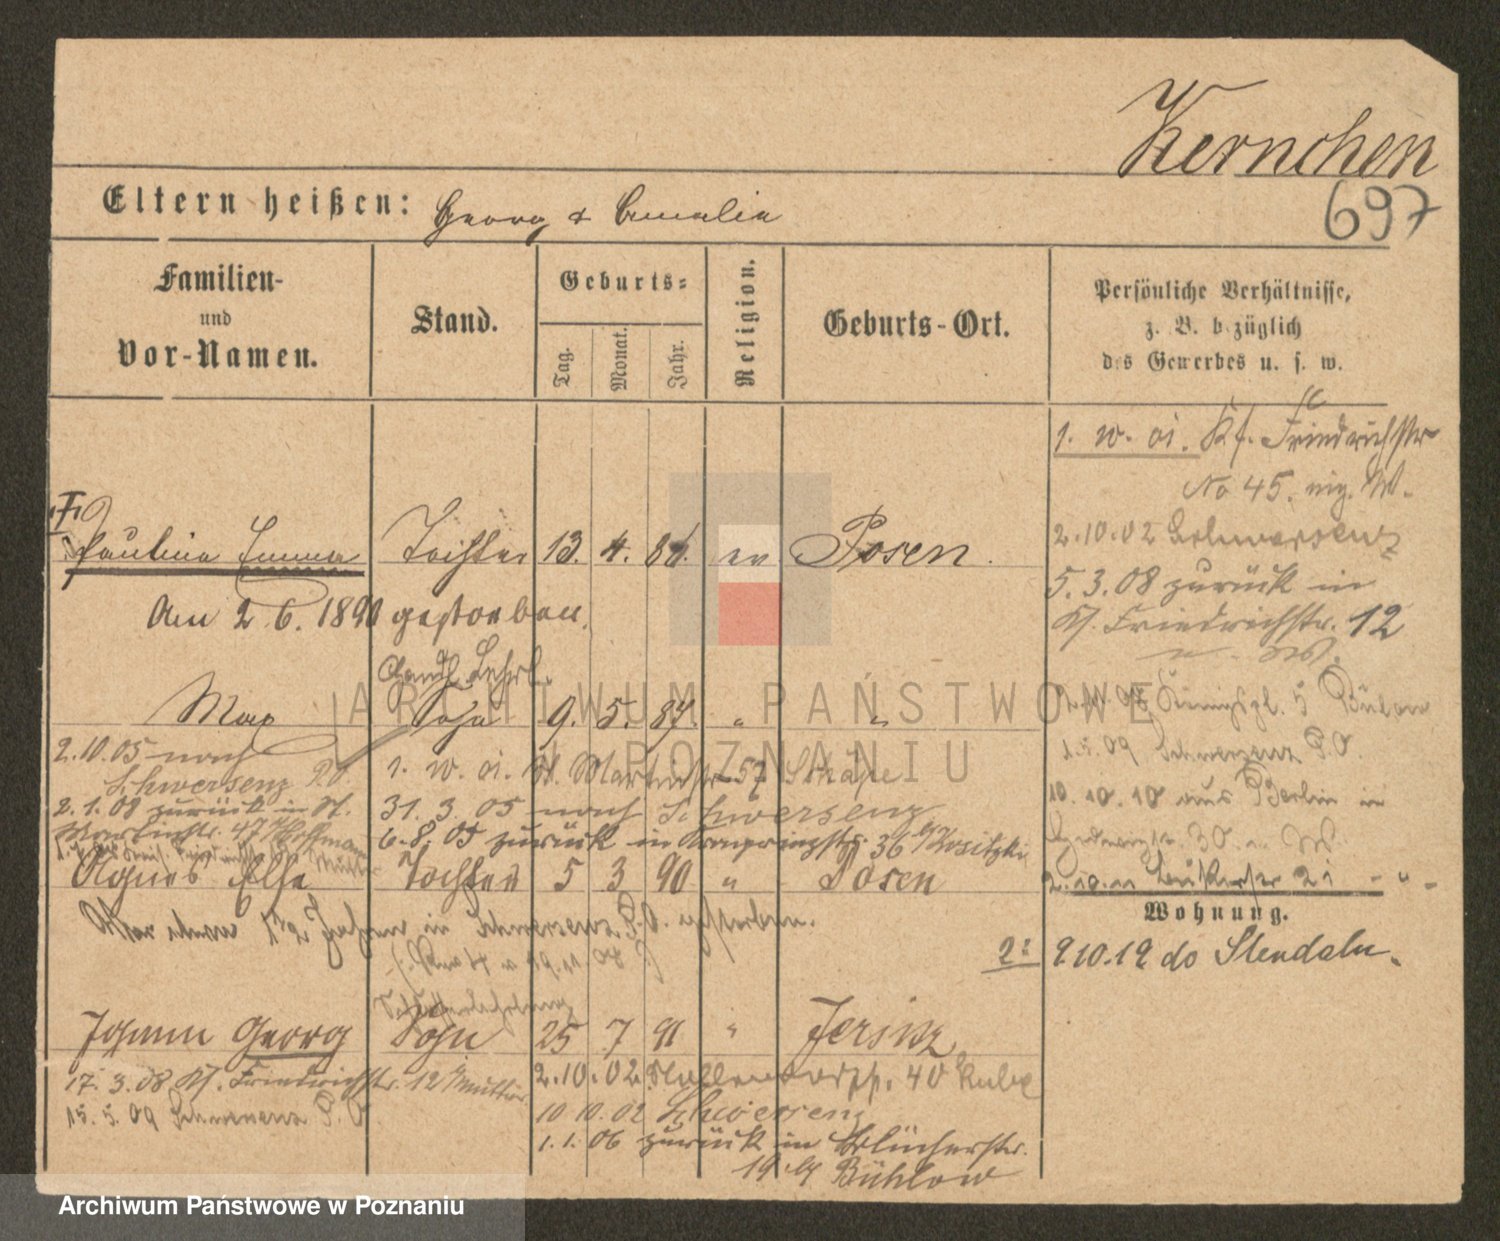 Kernchen
697
Eltern heißen: Georg & Amalie
Familien-
und
Vor-Namen.
Stand.
Geburts-
Tag.
Monat.
Jahr.
Religion.
Geburts-Ort.
Persönliche Verhältnisse,
z. B. bezüglich
des Gewerbes u. s. w.
1. w. oi. Kl. Friedrichstr
No 45.
Pauline Emma Tochter 13. 4. 86. ev Posen.
2.10.02 Schwersenz
5.3.08 zurück in
Kl. Friedrichstr. 12
Am 2.6.1890 gestorben.
Handl. Lehrl.
Max Sohn 9. 5. 87. " "
Königspl. 5 Bülow
1.5.09 Schwersenz P.O.
2.10.05 nach
Schwersenz P.O.
1. w. oi. St. Martinstr 57 Schäpe
2.1.08 zurück in St.
Martinstr. 47 Hoffmann
31.3.05 nach Schwersenz
6.8.05 zurück in Kronprinzstr. 36
10.10.10 aus Berlin in
30.
Agnes Else Tochter 5 3 90 " Posen
2.10.11 21 - " -
Wohnung.
in Schwersenz P.O. gestorben.
2: 2 10.12 do Stendaln.
Johann Georg Sohn 25 7 91 " Jersitz
17.3.08 Kl. Friedrichstr. 12 Mutter
15.5.09 Schwersenz P.O
2.10.02 40
10 10.02 Schwersenz
1.1.06 zurück in Blücherstr.
19 Bühlow
ARCHIWUM PAŃSTWOWE
W POZNANIU
Archiwum Państwowe w Poznaniu